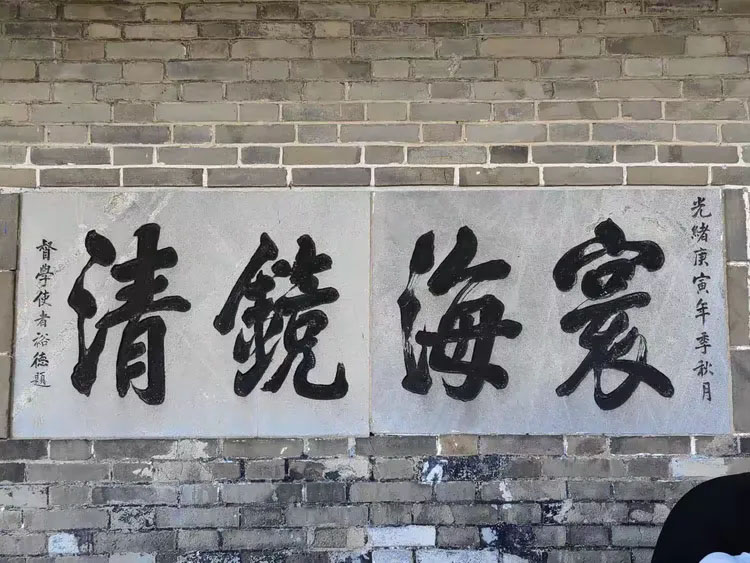 光緒庚寅年季秋月
寰海鏡清
督學使者裕德題